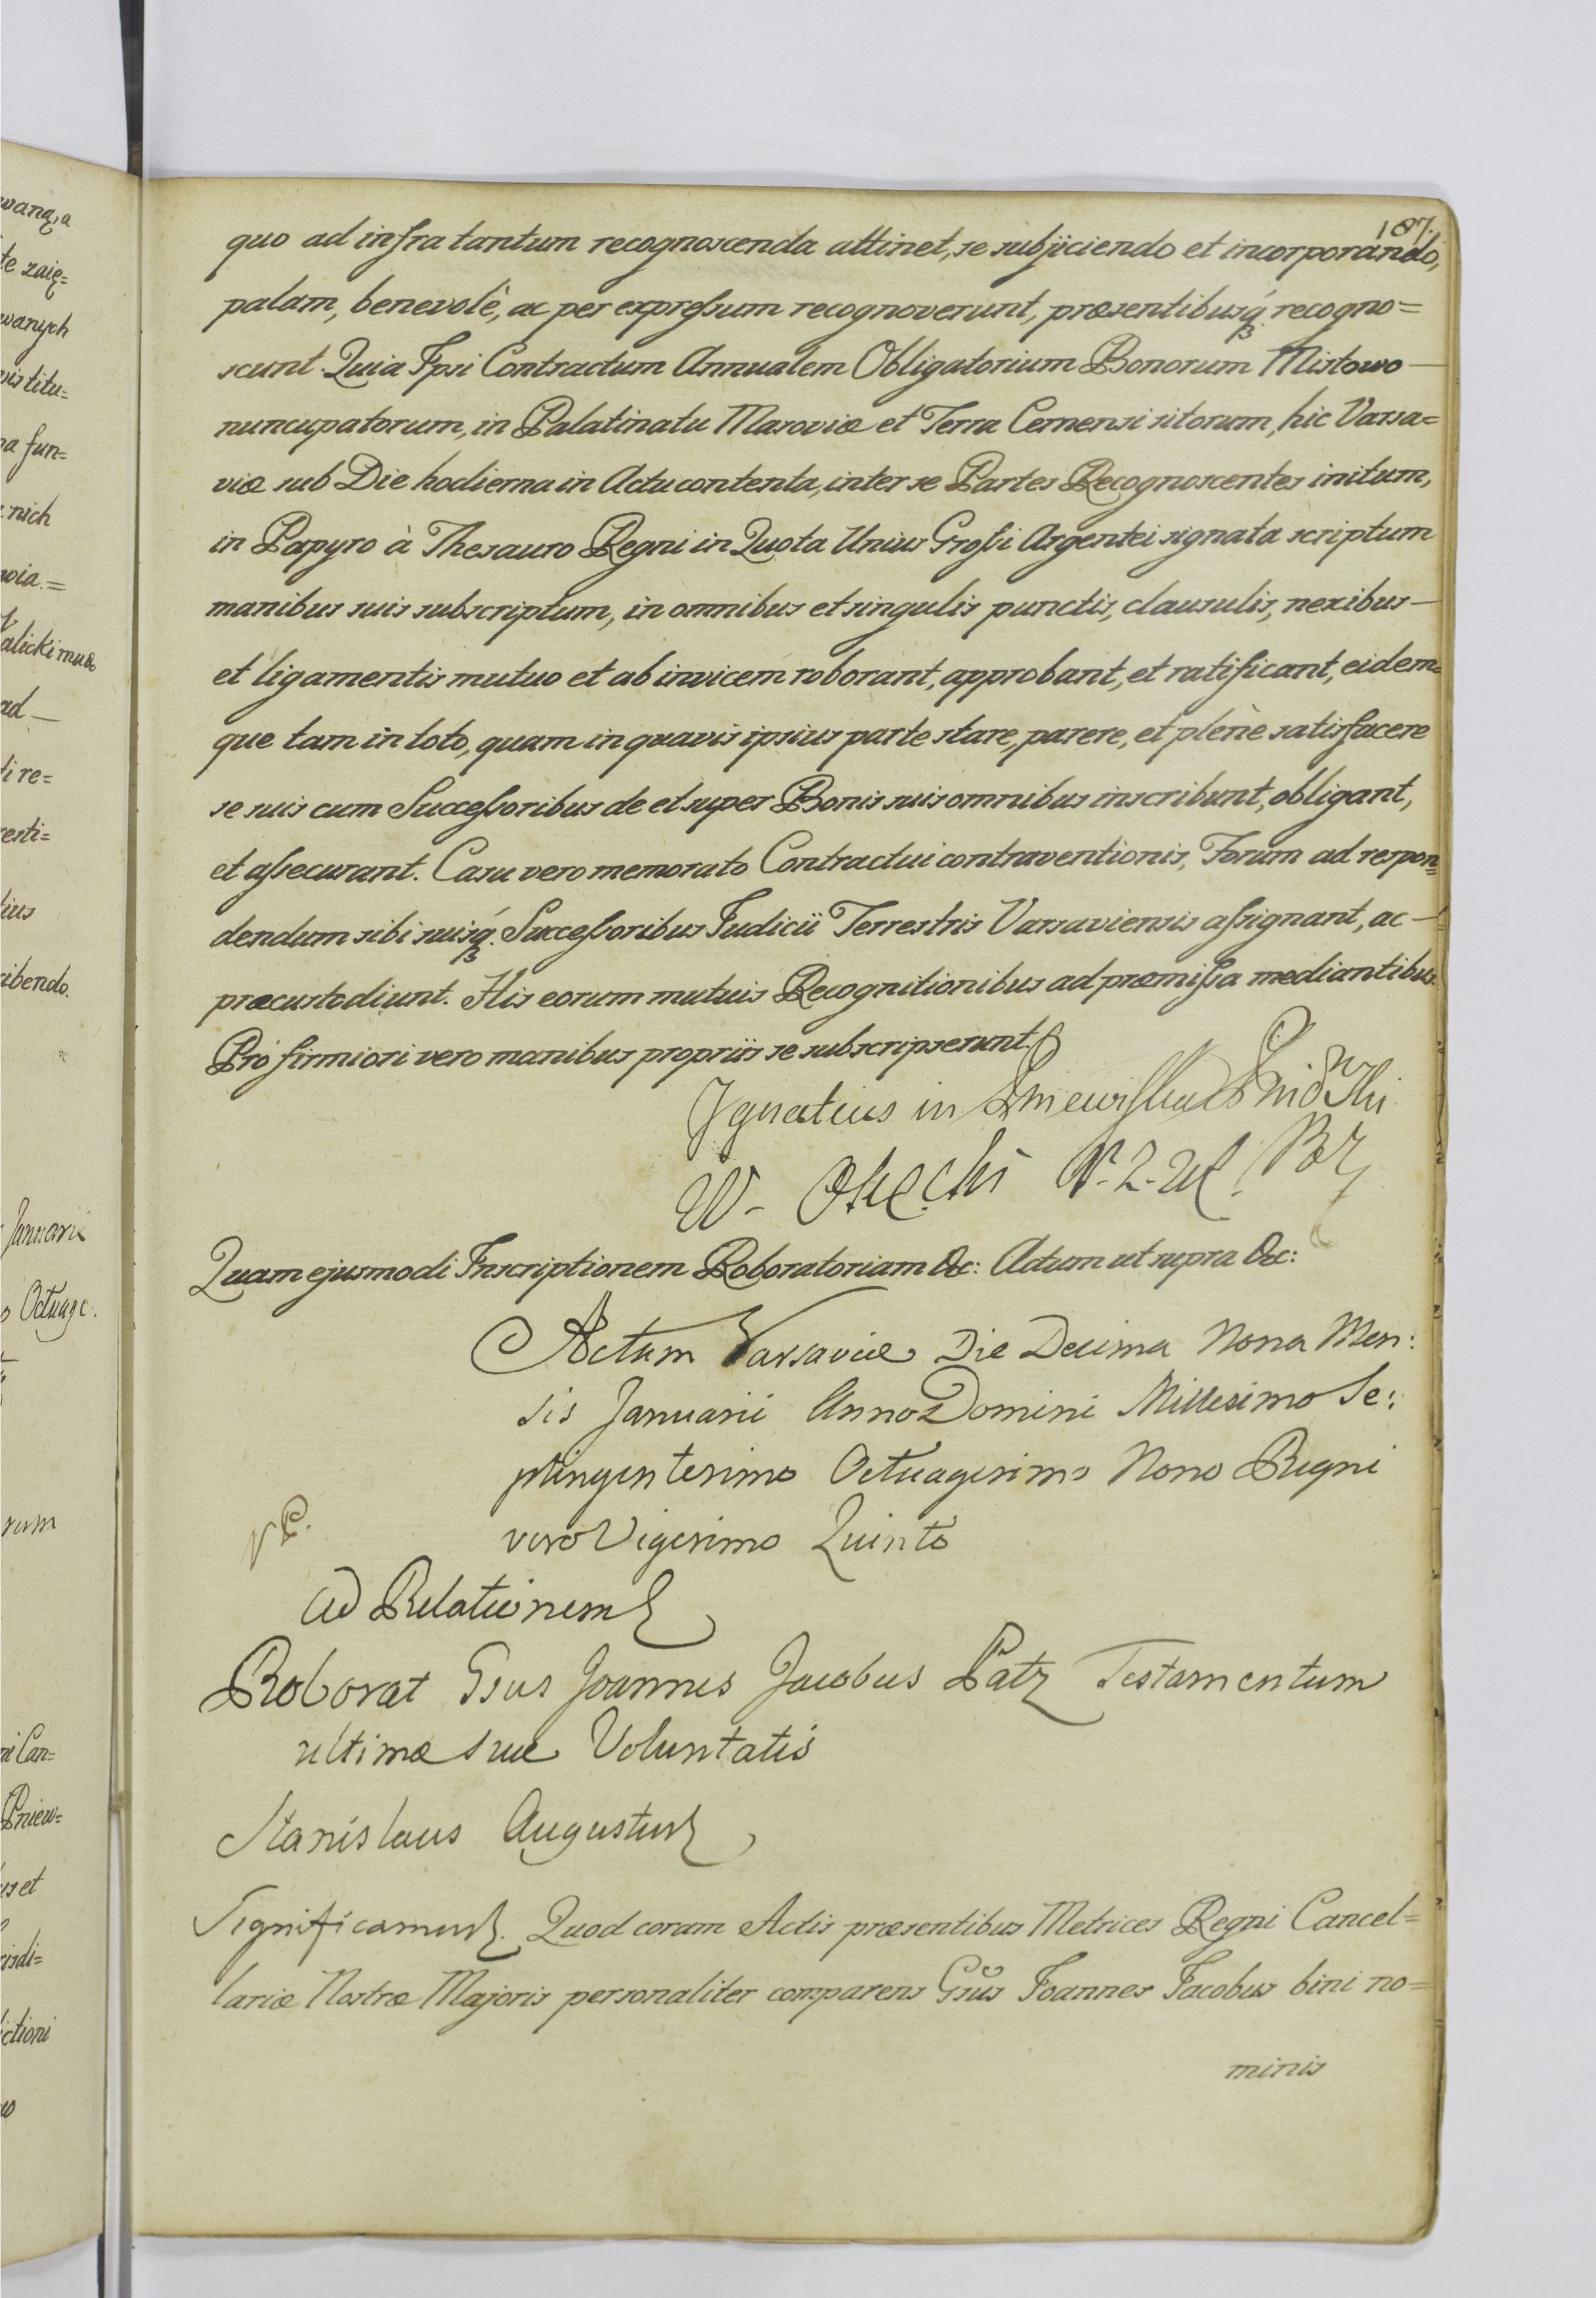 187.
quo ad infra tantum recognoscenda attinet, se subjiciendo et incorporando,
palam, benevolè, ac per expressum recognoverunt, præsentibusq́ recogno=
scunt. Quia Ipsi Contractum Annualem Obligatorium Bonorum Mistowo —
nuncupatorum, in Palatinatu Masoviæ et Terra Cernensi sitorum, hic Varsa=
viæ sub Die hodierna in Actu contenta, inter se Partes Recognoscentes initum,
in Papyro à Thesauro Regni in Quota Unius Grossi Argentei signata scriptum
manibus suis subscriptum, in omnibus et singulis punctis, clausulis, nexibus —
et ligamentis mutuo et ab invicem roborant, approbant, et ratificant, eidem=
que tam in toto, quam in quavis ipsius parte stare, parere, et plenè satisfacere
se suis cum Successoribus de et super Bonis suis omnibus inscribunt, obligant,
et assecurant. Casu vero memorato Contractui contraventionis, Forum ad respon=
dendum sibi suisq́. Successoribus Judicii Terrestris Varsaviensis assignant, ac —
præcustodiunt. His eorum mutuis Recognitionibus ad præmissa mediantibus.
Pro firmiori vero manibus propriis se subscripserunt.
Ignatius in
W-
Quam ejusmodi Inscriptionem Roboratoriam &c: Actum ut supra &c:
Actum Varsaviæ Die Decima Nona Men:
sis Januarii Anno Domini Millesimo Se:
ptingentesimo Octuagesimo Nono Regni
vero Vigesimo Quinto
Ad Relationem
Roborat Gsus Joannes Jacobus Patz Testamentum
ultimæ suæ Voluntatis
Stanislaus Augustus
Significamus. Quod coram Actis præsentibus Metrices Regni Cancel=
lariæ Nostræ Majoris personaliter comparens Gsus Joannes Jacobus bini no=
minis